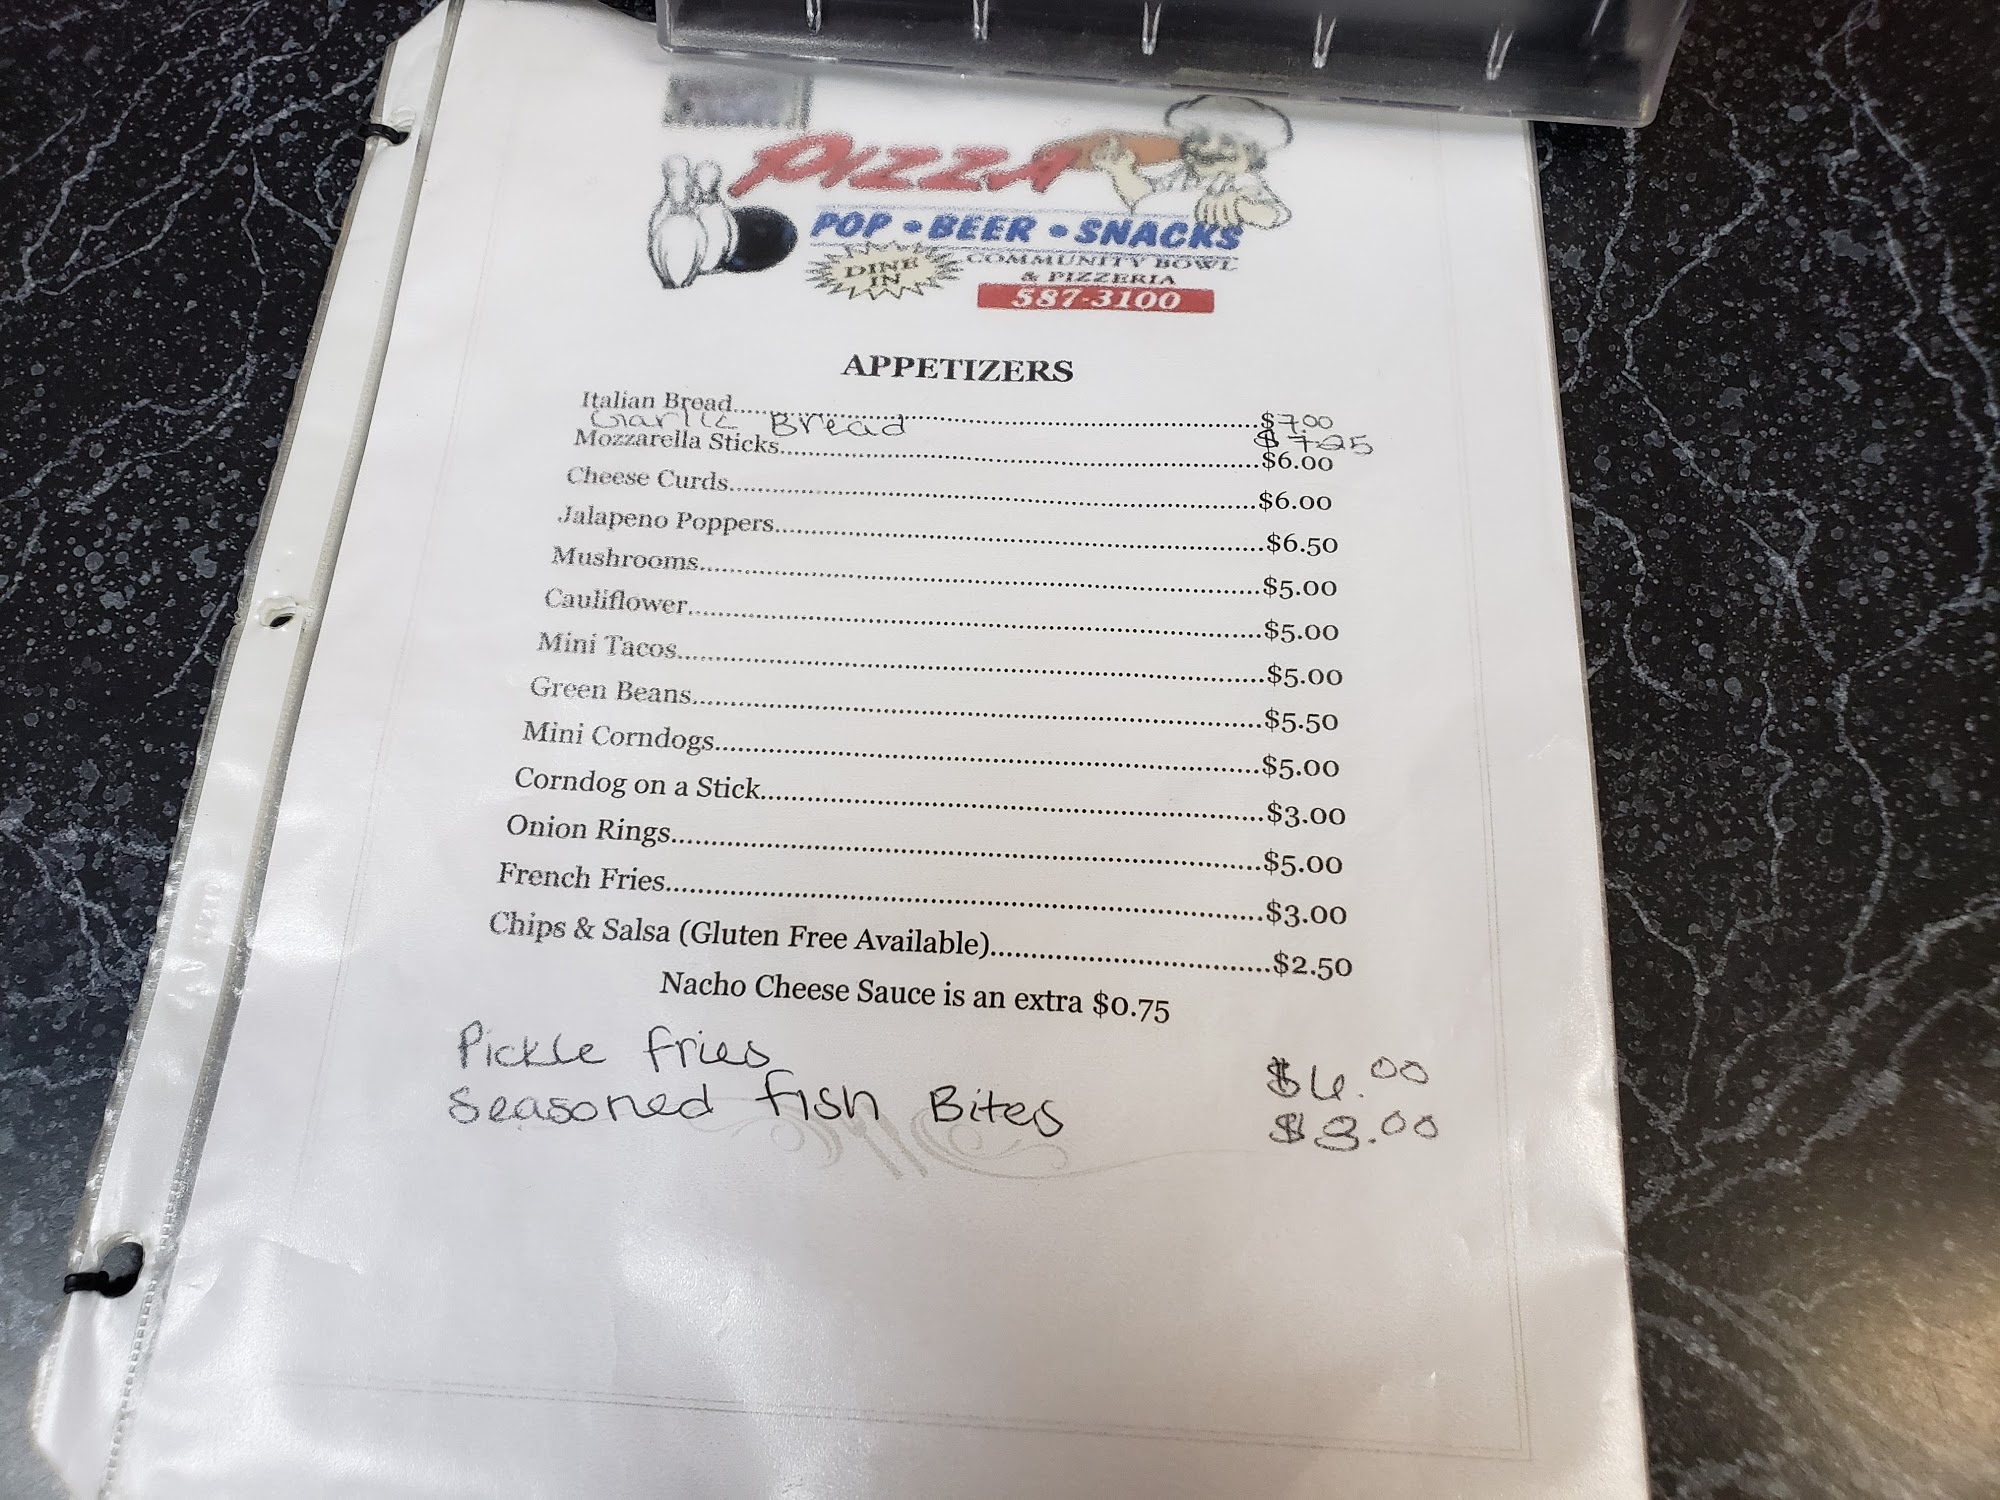 PIZZA
POP • BEER • SNACKS
DINE IN
COMMUNITY BOWL
& PIZZERIA
587-3100
APPETIZERS
Italian Bread..........$7.00
Garlic Bread $7.25
Mozzarella Sticks..........$6.00
Cheese Curds..........$6.00
Jalapeno Poppers..........$6.50
Mushrooms..........$5.00
Cauliflower..........$5.00
Mini Tacos..........$5.00
Green Beans..........$5.50
Mini Corndogs..........$5.00
Corndog on a Stick..........$3.00
Onion Rings..........$5.00
French Fries..........$3.00
Chips & Salsa (Gluten Free Available)..........$2.50
Nacho Cheese Sauce is an extra $0.75
Pickle fries $6.00
Seasoned fish Bites $3.00